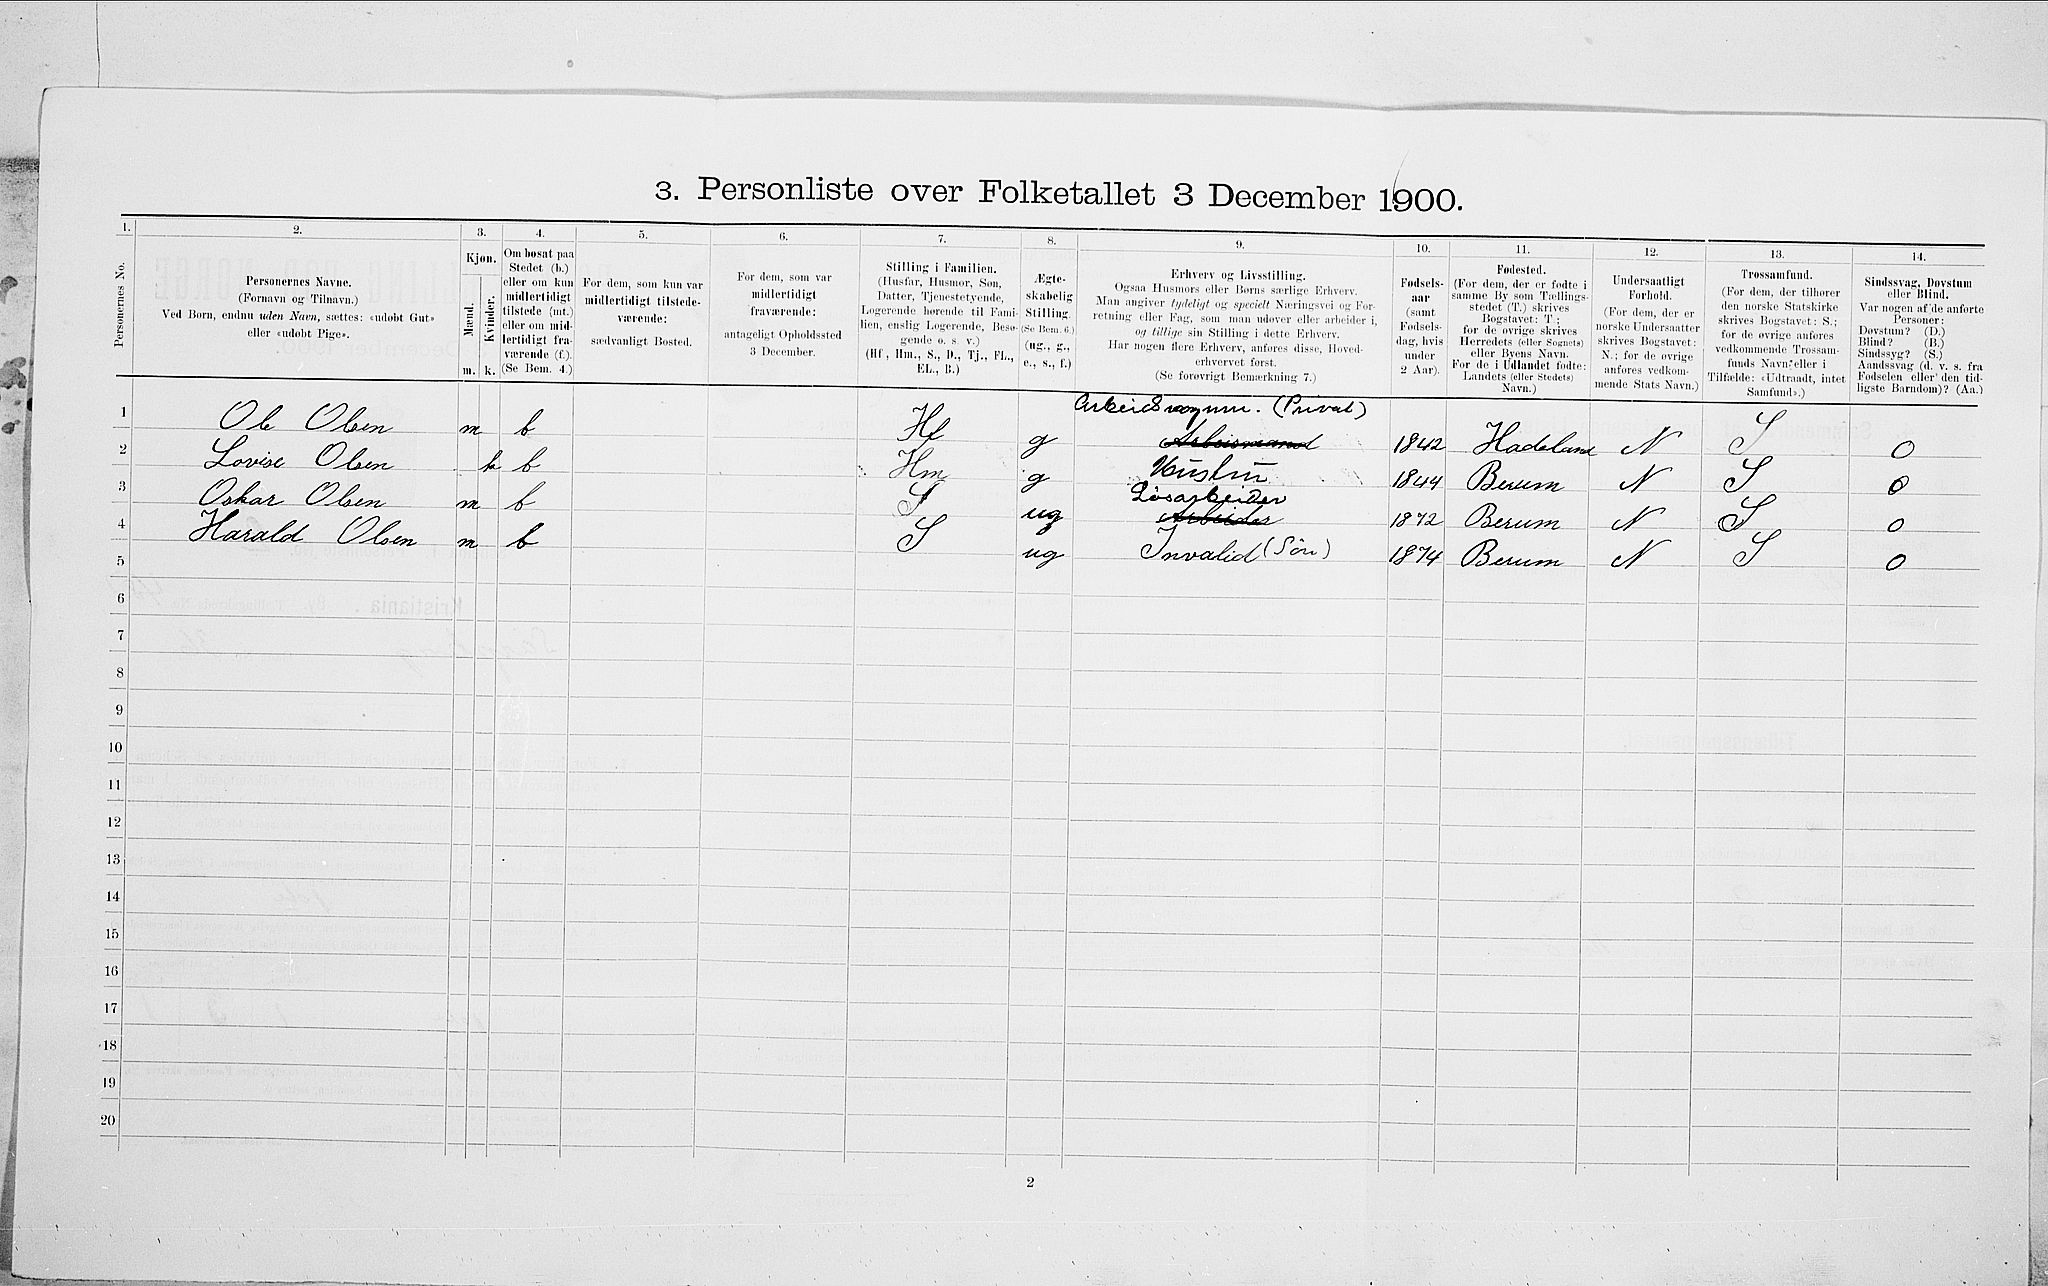 3. Personliste over Folketallet 3 December 1900.
1. 2. 3. 4. 5. 6. 7. 8. 9. 10. 11. 12. 13. 14.
Personernes No.
Personernes Navne.
(Fornavn og Tilnavn.)
Ved Børn, endnu uden Navn, sættes: «udøbt Gut»
eller «udøbt Pige».
Kjøn.
Mænd.
Kvinder.
m. k.
Om bosat paa
Stedet (b.)
eller om kun
midlertidigt
tilstede (mt.)
eller om mid-
lertidigt fra-
værende (f.).
(Se Bem. 4.)
For dem, som kun var
midlertidigt tilstede-
værende:
sædvanligt Bosted.
For dem, som var
midlertidigt
fraværende:
antageligt Opholdssted
3 December.
Stilling i Familien.
(Husfar, Husmor, Søn,
Datter, Tjenestetyende,
Logerende hørende til Fami-
lien, enslig Logerende, Besø-
gende o. s. v.)
(Hf., Hm., S., D., Tj., FL.,
EL., B.)
Ægte-
skabelig
Stilling.
(Se Bem. 6.)
(ug., g.,
e., s., f.)
Erhverv og Livsstilling.
Ogsaa Husmors eller Børns særlige Erhverv.
Man angiver tydeligt og specielt Næringsvei og For-
retning eller Fag, som man udøver eller arbeider i,
og tillige sin Stilling i dette Erhverv.
Har nogen flere Erhverv, anføres disse, Hoved-
erhvervet først.
(Se forøvrigt Bemærkning 7.)
Fødsels-
aar
(samt
Fødsels-
dag, hvis
under
2 Aar).
Fødested.
(For dem, der er fødte i
samme By som Tællings-
stedet (T.) skrives
Bogstavet: T.;
for de øvrige skrives
Herredets (eller Sognets)
eller Byens Navn.
For de i Udlandet fødte:
Landets (eller Stedets)
Navn.)
Undersaatligt
Forhold.
(For dem, der er
norske Undersaatter
skrives Bogstavet:
N.; for de øvrige
anføres vedkom-
mende Stats Navn.)
Trossamfund.
(For dem, der tilhører
den norske Statskirke
skrives Bogstavet: S.;
for de øvrige anføres
vedkommende Trossam-
funds Navn, eller i
Tilfælde: «Udtraadt, intet
Samfund».)
Sindssvag, Døvstum
eller Blind.
Var nogen af de anførte
Personer:
Døvstum? (D.)
Blind? (B.)
Sindssyg? (S.)
Aandssvag (d. v. s. fra
Fødselen eller den tid-
ligste Barndom)? (Aa.)
Arbeidsmann. (Privat)
1 Ole Olsen m b Hf g Arbeismand 1842 Hadeland N S 0
2 Lovise Olsen k b Hm g Hustru 1844 Berum N S 0
Løsarbeider
3 Oskar Olsen m b S ug Arbeider 1872 Berum N S 0
4 Harald Olsen m b S ug Invalid (Søn) 1874 Berum N S 0
5
6
7
8
9
10
11
12
13
14
15
16
17
18
19
20
2